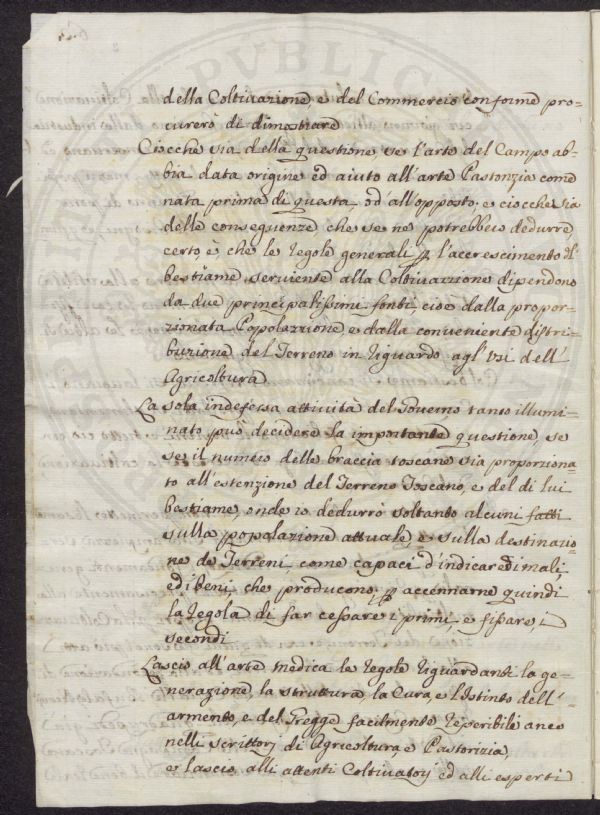 della Coltivazione, e del Commercio conforme pro-
curerò di dimostrare
Ciocchè sia della questione se l'arte del Campo ab-
bia data origine ed aiuto all'arte Pastorizia come
nata prima di questa, od all'opposto, e ciocchè sia
delle conseguenze che se ne potrebbero dedurre
certo è che le regole generali p l'accrescimento d.l
bestiame serviente alla Coltivazione dipendono
da due principalissimi fonti, cioè dalla propor-
zionata Popolazione, e dalla conveniente distri-
buzione del Terreno in riguardo agl'usi dell'
Agricoltura
La sola indefessa attività del Governo tanto illumi-
nato può decidere la importante questione, se
sei il numero delle braccia toscane sia proporziona-
to all'estenzione del Terreno Toscano, e del di lui
bestiame, onde io dedurrò soltanto alcuni fatti
sulla popolazione attuale e sulla destinazio-
ne de Terreni come capaci d'indicare di mali,
ed i beni che producono p accennarne quindi
la regola di far cessare i primi, e fissare i
secondi
Lascio all'arte medica le regole riguardanti la ge-
nerazione, la struttura, la Cura, e l'Istinto dell'
armento, e del Gregge facilmente reperibile anco
nelli scrittorj di Agricoltura, e Pastorizia,
e lascio alli attenti Coltivatorj ed alli esperti
PVBLICA